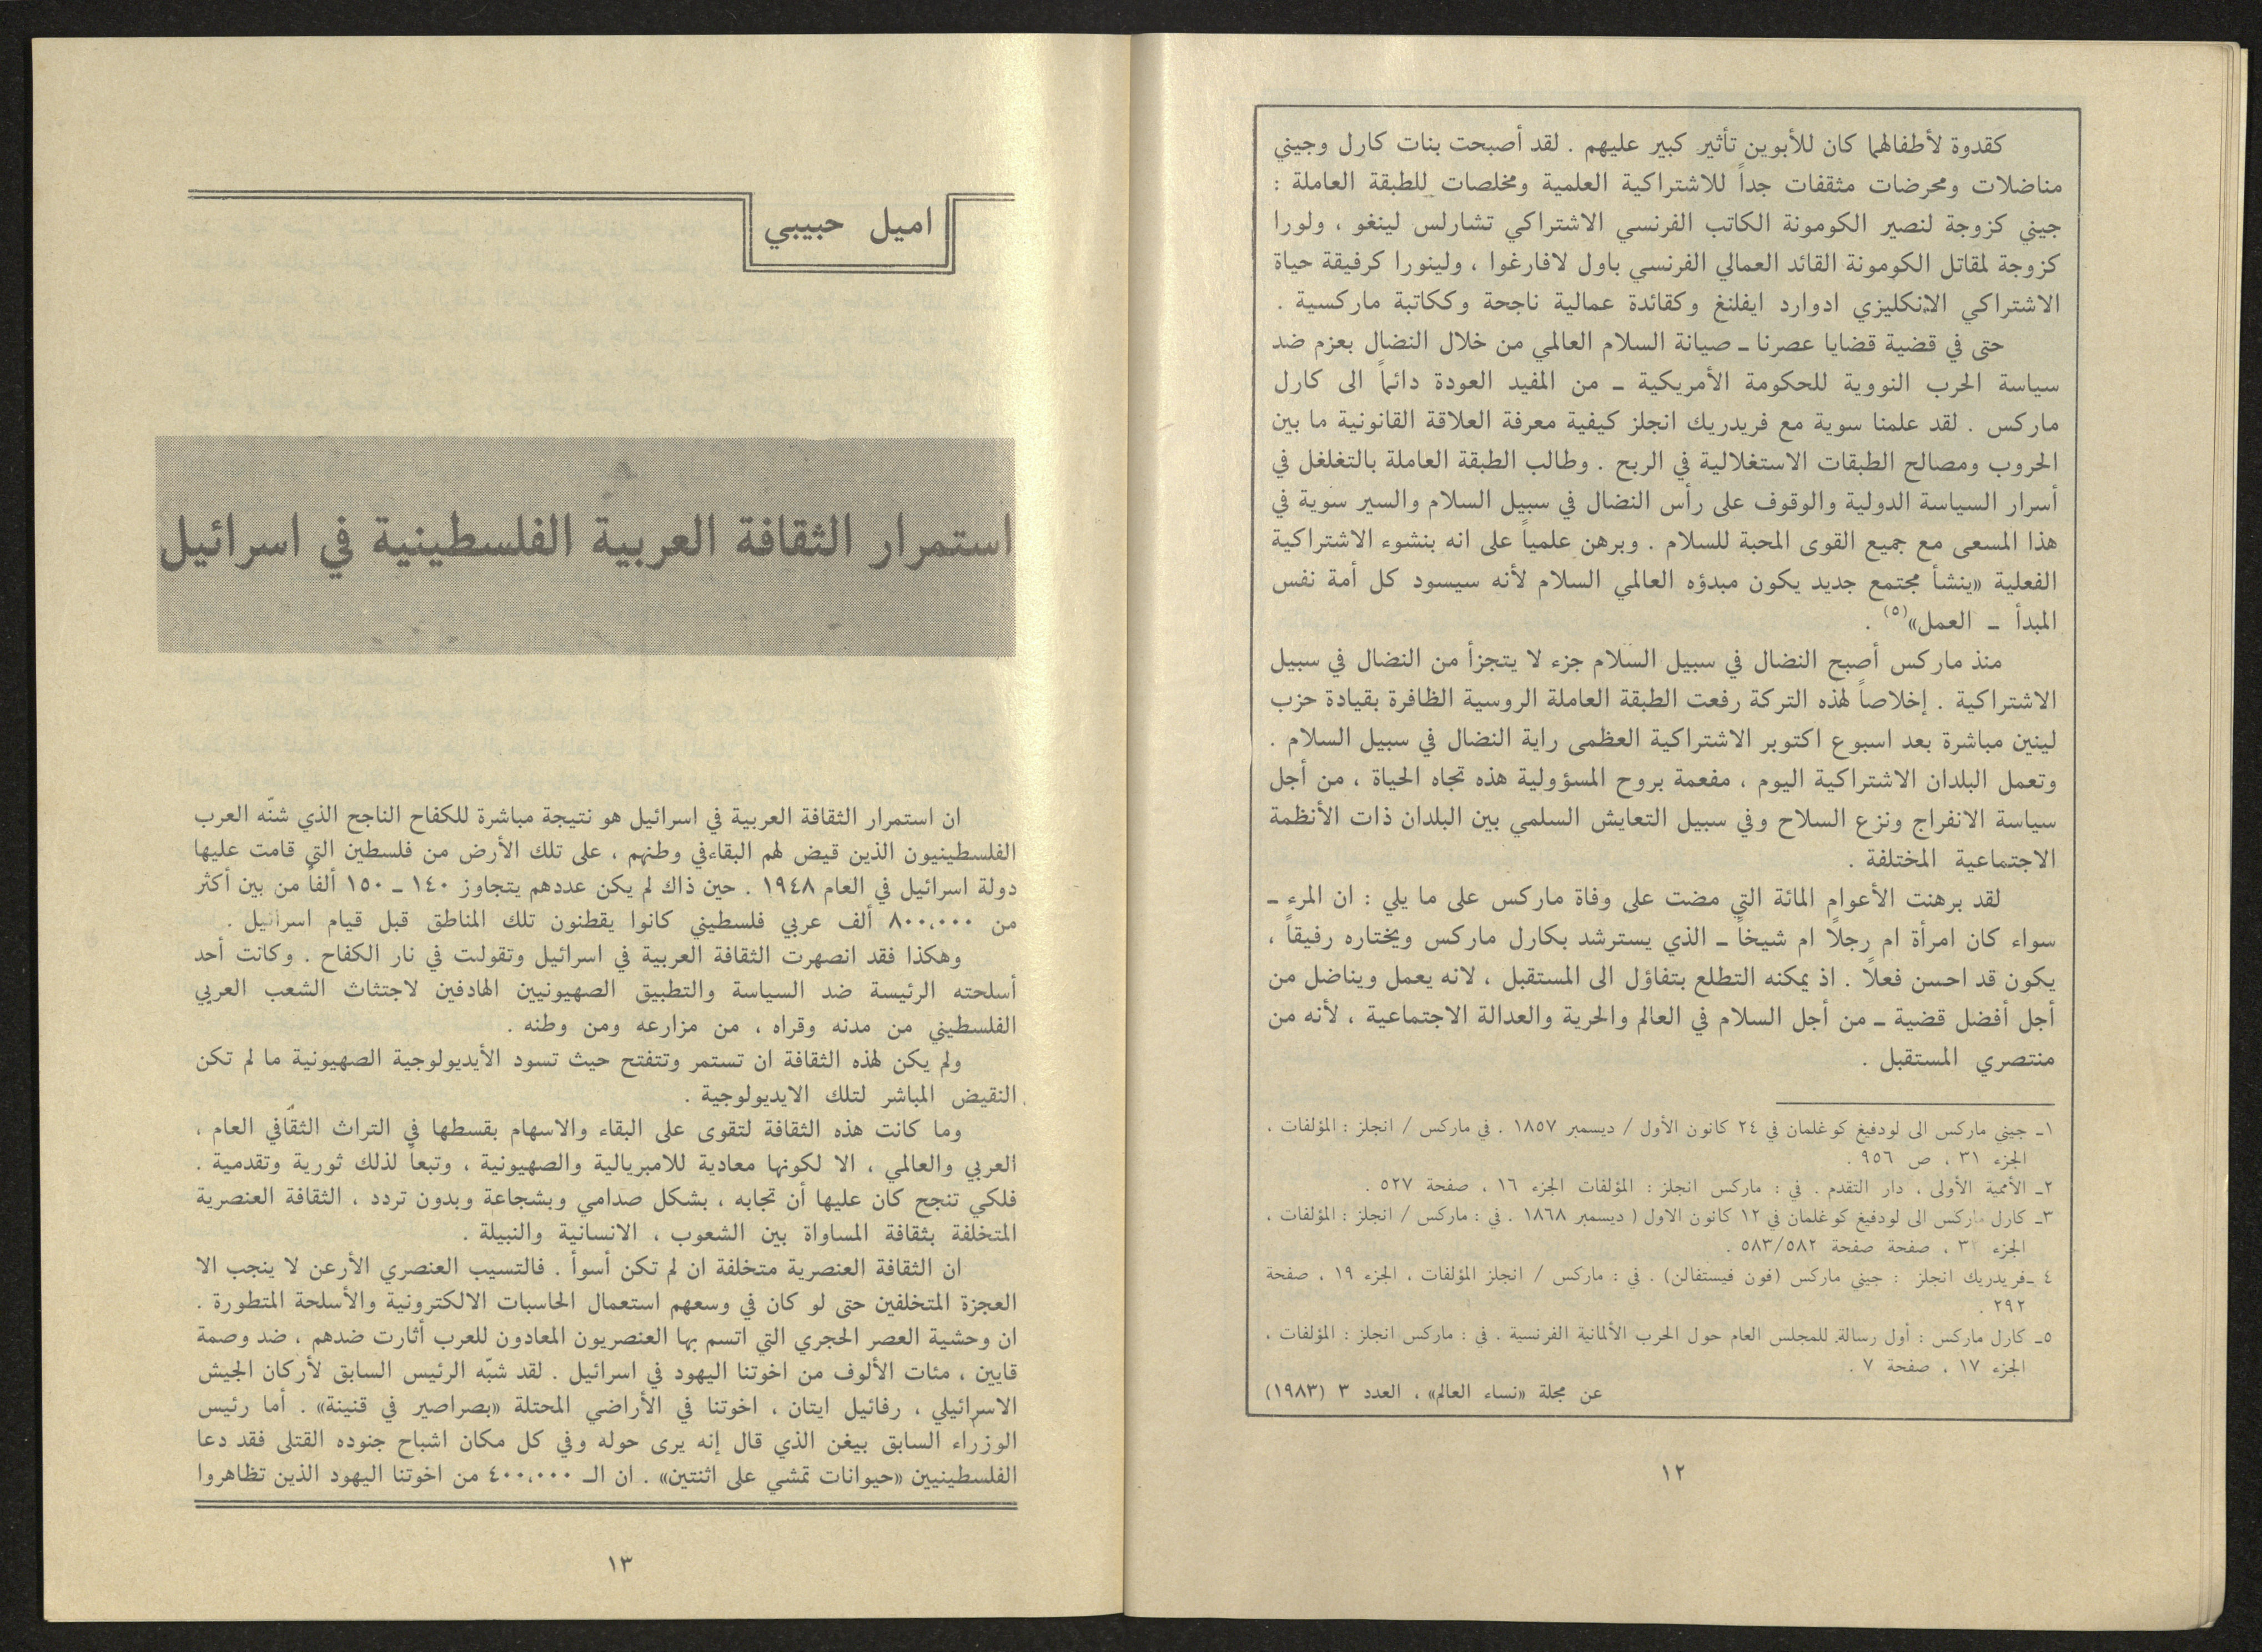 كقدوة لأطفالهما كان للأبوين تأثير كبير عليهم . لقد أصبحت بنات كارل وجيني
مناضلات ومحرضات مثقفات جداً للاشتراكية العلمية ومخلصات للطبقة العاملة :
جيني كزوجة لنصير الكومونة الكاتب الفرنسي الاشتراكي تشارلس لينغو ، ولورا
كزوجة لمقاتل الكومونة القائد العمالي الفرنسي باول لافارغوا ، ولينورا كرفيقة حياة
الاشتراكي الانكليزي ادوارد ايفلنغ وكقائدة عمالية ناجحة وككاتبة ماركسية .
حتى في قضية قضايا عصرنا ــ صيانة السلام العالمي من خلال النضال بعزم ضد
سياسة الحرب النووية للحكومة الأمريكية ــ من المفيد العودة دائماً الى كارل
ماركس . لقد علمنا سوية مع فريدريك انجلز كيفية معرفة العلاقة القانونية ما بين
الحروب ومصالح الطبقات الاستغلالية في الربح . وطالب الطبقة العاملة بالتغلغل في
أسرار السياسة الدولية والوقوف على رأس النضال في سبيل السلام والسير سوية في
هذا المسعى مع جميع القوى المحبة للسلام . وبرهن علمياً على انه بنشوء الاشتراكية
الفعلية «ينشأ مجتمع جديد يكون مبدؤه العالمي السلام لأنه سيسود كل أمة نفس
المبدأ ــ العمل»(٥) .
منذ ماركس أصبح النضال في سبيل السلام جزء لا يتجزأ من النضال في سبيل
الاشتراكية . إخلاصاً لهذه التركة رفعت الطبقة العاملة الروسية الظافرة بقيادة حزب
لينين مباشرة بعد اسبوع اكتوبر الاشتراكية العظمى راية النضال في سبيل السلام .
وتعمل البلدان الاشتراكية اليوم ، مفعمة بروح المسؤولية هذه تجاه الحياة ، من أجل
سياسة الانفراج ونزع السلاح وفي سبيل التعايش السلمي بين البلدان ذات الأنظمة
الاجتماعية المختلفة .
لقد برهنت الأعوام المائة التي مضت على وفاة ماركس على ما يلي : ان المرء ــ
سواء كان امرأة ام رجلاً ام شيخاً ــ الذي يسترشد بكارل ماركس ويختاره رفيقاً ،
يكون قد احسن فعلاً . اذ يمكنه التطلع بتفاؤل الى المستقبل ، لانه يعمل ويناضل من
أجل أفضل قضية ــ من أجل السلام في العالم والحرية والعدالة الاجتماعية ، لأنه من
منتصري المستقبل .
١ــ جيني ماركس الى لودفيغ كوغلمان في ٢٤ كانون الأول / ديسمبر ١٨٥٧ . في ماركس / انجلز : المؤلفات ،
الجزء ٣١ ، ص ٩٥٦ .
٢ــ الأممية الأولى ، دار التقدم . في : ماركس انجلز : المؤلفات الجزء ١٦ ، صفحة ٥٢٧ .
٣ــ كارل ماركس الى لودفيغ كوغلمان في ١٢ كانون الاول ( ديسمبر ١٨٦٨ . في : ماركس / انجلز : المؤلفات ،
الجزء ، صفحة صفحة ٥٨٣/٥٨٢ .
٤ ــفريدريك انجلز : جيني ماركس (فون فيستفالن) . في : ماركس / انجلز المؤلفات ، الجزء ١٩ ، صفحة
٢٩٢ .
٥ــ كارل ماركس : أول رسالة للمجلس العام حول الحرب الألمانية الفرنسية . في : ماركس انجلز : المؤلفات ،
الجزء ١٧ ، صفحة ٧ .
عن مجلة «نساء العالم» ، العدد ٣ (١٩٨٣)
١٢
اميل حبيبي
استمرار الثقافة العربية الفلسطينية في اسرائيل
ان استمرار الثقافة العربية في اسرائيل هو نتيجة مباشرة للكفاح الناجح الذي شنّه العرب
الفلسطينيون الذين قيض لهم البقاءفي وطنهم ، على تلك الأرض من فلسطين التي قامت عليها
دولة اسرائيل في العام ١٩٤٨ . حين ذاك لم يكن عددهم يتجاوز ١٤٠ ــ ١٥٠ ألفاً من بين أكثر
من ٨٠٠،٠٠٠ ألف عربي فلسطيني كانوا يقطنون تلك المناطق قبل قيام اسرائيل .
وهكذا فقد انصهرت الثقافة العربية في اسرائيل وتقولت في نار الكفاح . وكانت أحد
أسلحته الرئيسة ضد السياسة والتطبيق الصهيونيين الهادفين لاجتثاث الشعب العربي
الفلسطيني من مدنه وقراه ، من مزارعه ومن وطنه .
ولم يكن لهذه الثقافة ان تستمر وتتفتح حيث تسود الأيديولوجية الصهيونية ما لم تكن
النقيض المباشر لتلك الايديولوجية .
وما كانت هذه الثقافة لتقوى على البقاء والاسهام بقسطها في التراث الثقافي العام ،
العربي والعالمي ، الا لكونها معادية للامبريالية والصهيونية ، وتبعاً لذلك ثورية وتقدمية .
فلكي تنجح كان عليها أن تجابه ، بشكل صدامي وبشجاعة وبدون تردد ، الثقافة العنصرية
المتخلفة بثقافة المساواة بين الشعوب ، الانسانية والنبيلة .
ان الثقافة العنصرية متخلفة ان لم تكن أسوأ . فالتسيب العنصري الأرعن لا ينجب الا
العجزة المتخلفين حتى لو كان في وسعهم استعمال الحاسبات الالكترونية والأسلحة المتطورة .
ان وحشية العصر الحجري التي اتسم بها العنصريون المعادون للعرب أثارت ضدهم ، ضد وصمة
قايين ، مئات الألوف من اخوتنا اليهود في اسرائيل . لقد شبّه الرئيس السابق لأركان الجيش
الاسرائيلي ، رفائيل ايتان ، اخوتنا في الأراضي المحتلة «بصراصير في قنينة» . أما رئيس
الوزراء السابق بيغن الذي قال إنه يرى حوله وفي كل مكان اشباح جنوده القتلى فقد دعا
الفلسطينيين «حيوانات تمشي على اثنتين» . ان الـ ٤٠٠،٠٠٠ من اخوتنا اليهود الذين تظاهروا
١٣